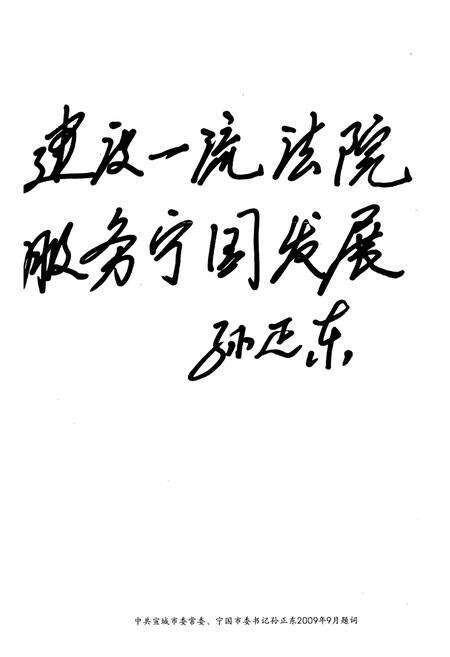 建设一流法院
服务宁国发展
孙正东
中共宣城市委常委、宁国市委书记孙正东2009年9月题词